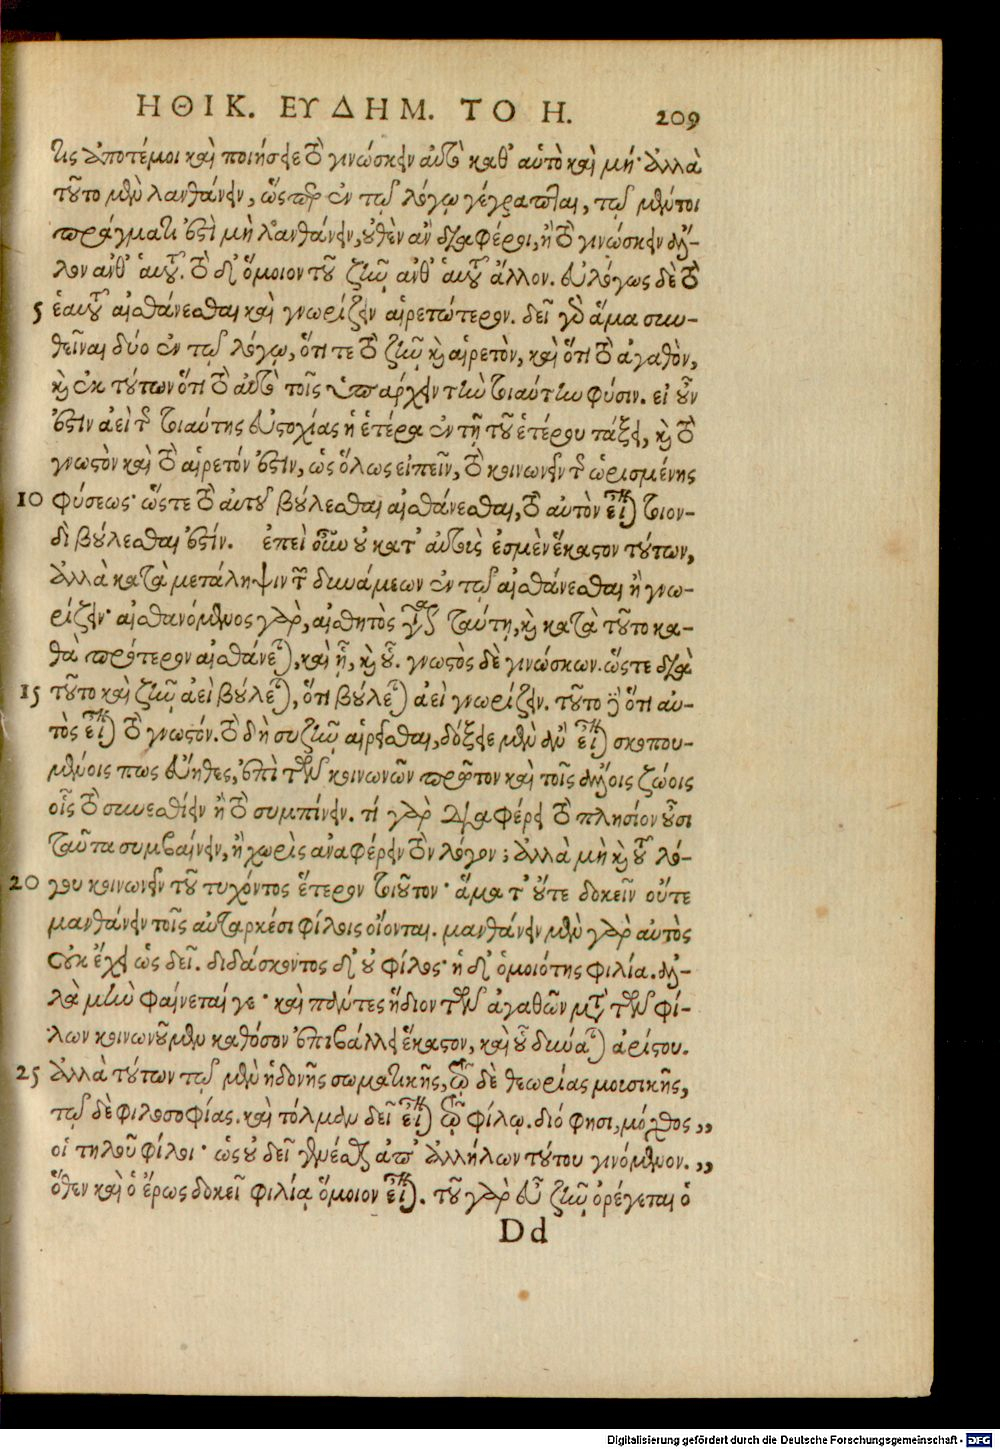 ΗΘΙΚ. ΕΥΔΗΜ. ΤΟ Η. 209
τις ἀποτέμοι καὶ ποιήσειε τὸ γινώσκειν αὐτὸ καθ' αὑτὸ καὶ μή· ἀλλὰ
τοῦτο μὲν λανθάνειν, ὥσπερ ἐν τῷ λόγῳ γέγραπται, τῷ μέντοι
πράγματι ἔστι μὴ λανθάνειν, οὐθὲν ἂν διαφέροι, ἢ τὸ γινώσκειν ἄλ-
λον ἀνθ' αὑτοῦ. τὸ δ' ὅμοιον τοῦ ζῆν ἀνθ' αὑτοῦ ἄλλον. εὐλόγως δὲ τὸ
5 ἑαυτοῦ αἰσθάνεσθαι καὶ γνωρίζειν αἱρετώτερον. δεῖ γὰρ ἅμα συν-
θεῖναι δύο ἐν τῷ λόγῳ, ὅτι τε τὸ ζῆν καὶ αἱρετὸν, καὶ ὅτι τὸ ἀγαθὸν,
καὶ ἐκ τούτων ὅτι τὸ αὐτὸ τοῖς ὑπάρχειν τὴν τοιαύτην φύσιν. εἰ οὖν
ἔστιν ἀεὶ τῆς τοιαύτης εὐστοχίας ἡ ἑτέρα ἐν τῇ τοῦ ἑτέρου τάξει, καὶ τὸ
γνωστὸν καὶ τὸ αἱρετόν ἐστιν, ὡς ὅλως εἰπεῖν, τὸ κοινωνεῖν τῆς ὡρισμένης
10 φύσεως· ὥστε τὸ αὐτοῦ βούλεσθαι αἰσθάνεσθαι, τὸ αὐτὸν εἶναι τοιον-
δὶ βούλεσθαι ἐστίν. ἐπεὶ οὖν οὐ κατ' αὐτοὺς ἐσμὲν ἕκαστον τούτων,
ἀλλὰ κατὰ μετάληψιν τῶν δυνάμεων ἐν τῷ αἰσθάνεσθαι ἢ γνω-
ρίζειν· αἰσθανόμενος γὰρ, αἰσθητὸς γίνεται ταύτῃ, καὶ κατὰ τοῦτο κα-
θὰ πρότερον αἰσθάνεται, καὶ ᾗ, καὶ οὗ. γνωστὸς δὲ γινώσκων. ὥστε διὰ
15 τοῦτο καὶ ζῆν ἀεὶ βούλεται, ὅτι βούλεται ἀεὶ γνωρίζειν. τοῦτο δὲ ὅτι αὐ-
τὸς εἶναι τὸ γνωστόν. τὸ δὴ συζῆν αἱρεῖσθαι, δόξειε μὲν ἂν εἶναι σκοπου-
μένοις πως εὔηθες, ἐπὶ τῶν κοινωνῶν πρῶτον καὶ τοῖς ἄλλοις ζώοις
οἷς τὸ συνεσθίειν ἢ τὸ συμπίνειν. τί γὰρ διαφέρει τὸ πλησίον οὖσι
ταῦτα συμβαίνειν, ἢ χωρὶς ἀναφέρειν τὸν λόγον; ἀλλὰ μὴ καὶ τοῦ λό-
20 γου κοινωνεῖν τοῦ τυχόντος ἕτερον τοιοῦτον· ἅμα τ' οὔτε δοκεῖν οὔτε
μανθάνειν τοῖς αὐταρκέσι φίλοις οἴονται. μανθάνειν μὲν γὰρ αὐτὸς
οὐκ ἔχει ὡς δεῖ. διδάσκοντος δ' οὐ φίλος· ἡ δ' ὁμοιότης φιλία. ἀλ-
λὰ μὴν φαίνεταί γε· καὶ πάντες ἥδιον τῶν ἀγαθῶν μετὰ τῶν φί-
λων κοινωνοῦμεν καθόσον ἐπιβάλλει ἕκαστον, καὶ οὗ δύναται ἀρίστου.
25 ἀλλὰ τούτων τῷ μὲν ἡδονῆς σωματικῆς, τῷ δὲ θεωρίας μουσικῆς,
τῷ δὲ φιλοσοφίας. καὶ τόλμαν δεῖ εἶναι τῷ φίλῳ. διό φησι, μόχθος „
οἱ τηλοῦ φίλοι· ὡς οὐ δεῖ γενέσθαι ἀπ' ἀλλήλων τούτου γινόμενον. „
ὅθεν καὶ ὁ ἔρως δοκεῖ φιλίᾳ ὅμοιον εἶναι. τοῦ γὰρ εὖ ζῆν ὀρέγεται ὁ
Dd
Digitalisierung gefördert durch die Deutsche Forschungsgemeinschaft - DFG